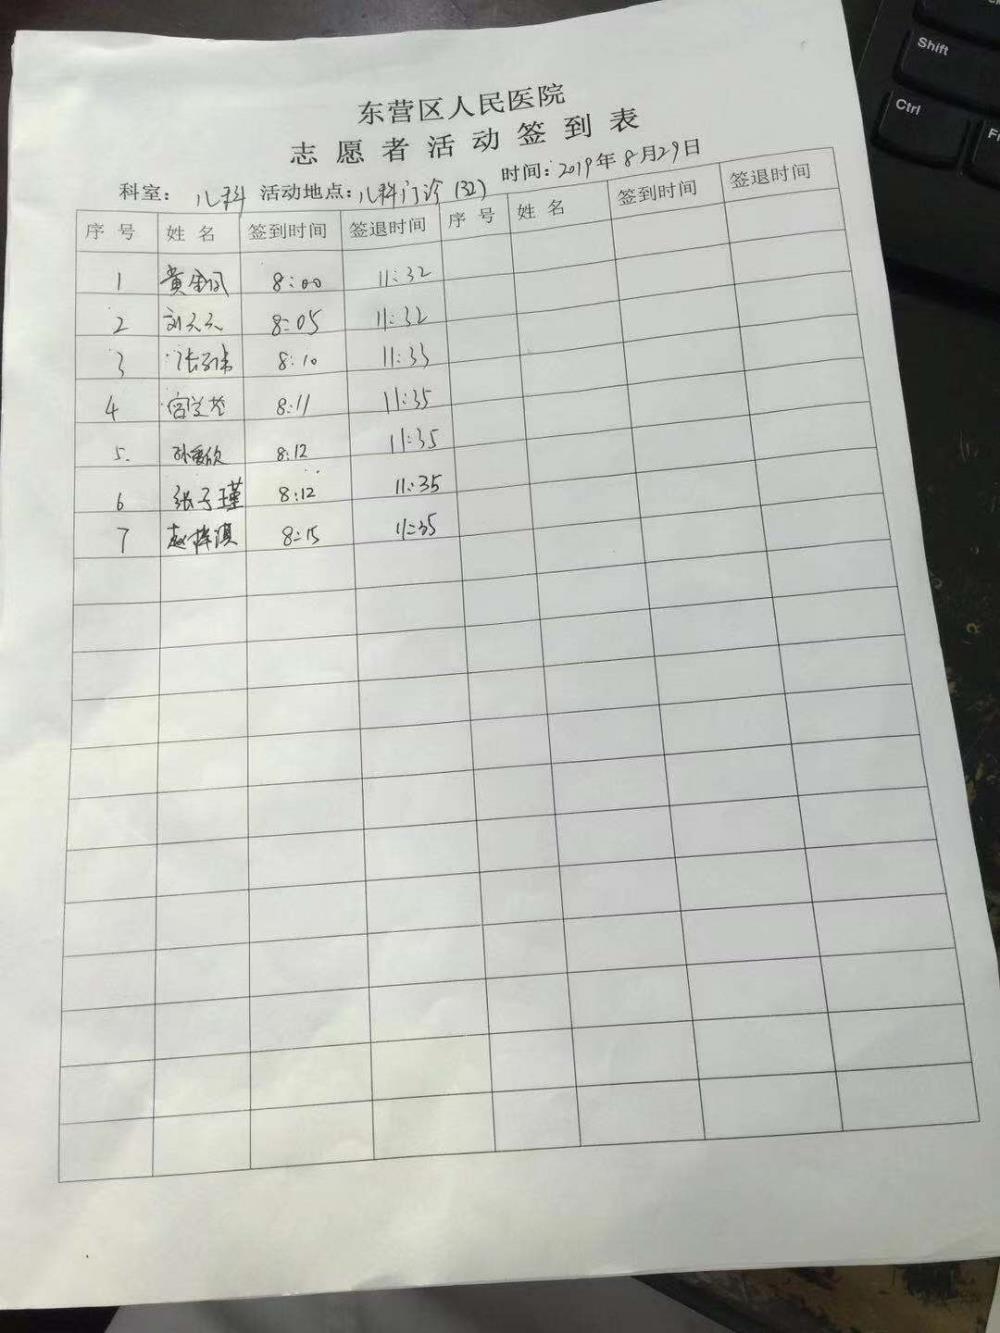 Shift
Ctrl
东营区人民医院
志愿者活动签到表
科室: 儿科 活动地点: 儿科门诊(32) 时间: 2019年8月29日
序号 姓名 签到时间 签退时间 序号 姓名 签到时间 签退时间
1 黄金凤 8:00 11:32
2 刘元元 8:05 11:32
3 8:10 11:33
4 8:11 11:35
5. 8:12 11:35
6 张子瑾 8:12 11:35
7 赵梓淇 8:15 11:35